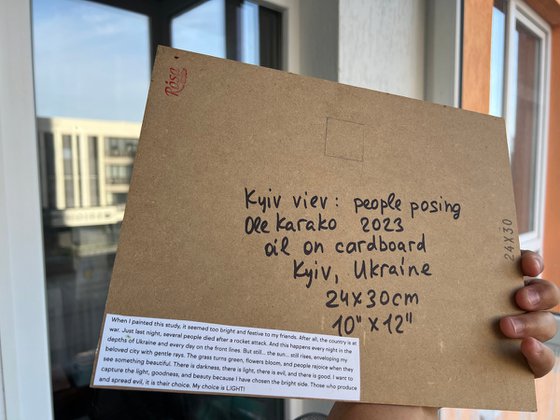 Rosa
Kyiv viev: people posing
Ole Karako 2023
oil on cardboard
Kyiv, Ukraine
24x30cm
10" x 12"
24X30
When I painted this study, it seemed too bright and festive to my friends. After all, the country is at
war. Just last night, several people died after a rocket attack. And this happens every night in the
depths of Ukraine and every day on the front lines. But still... the sun... still rises, enveloping my
beloved city with gentle rays. The grass turns green, flowers bloom, and people rejoice when they
see something beautiful. There is darkness, there is light, there is evil, and there is good. I want to
capture the light, goodness, and beauty because I have chosen the bright side. Those who produce
and spread evil, it is their choice. My choice is LIGHT!